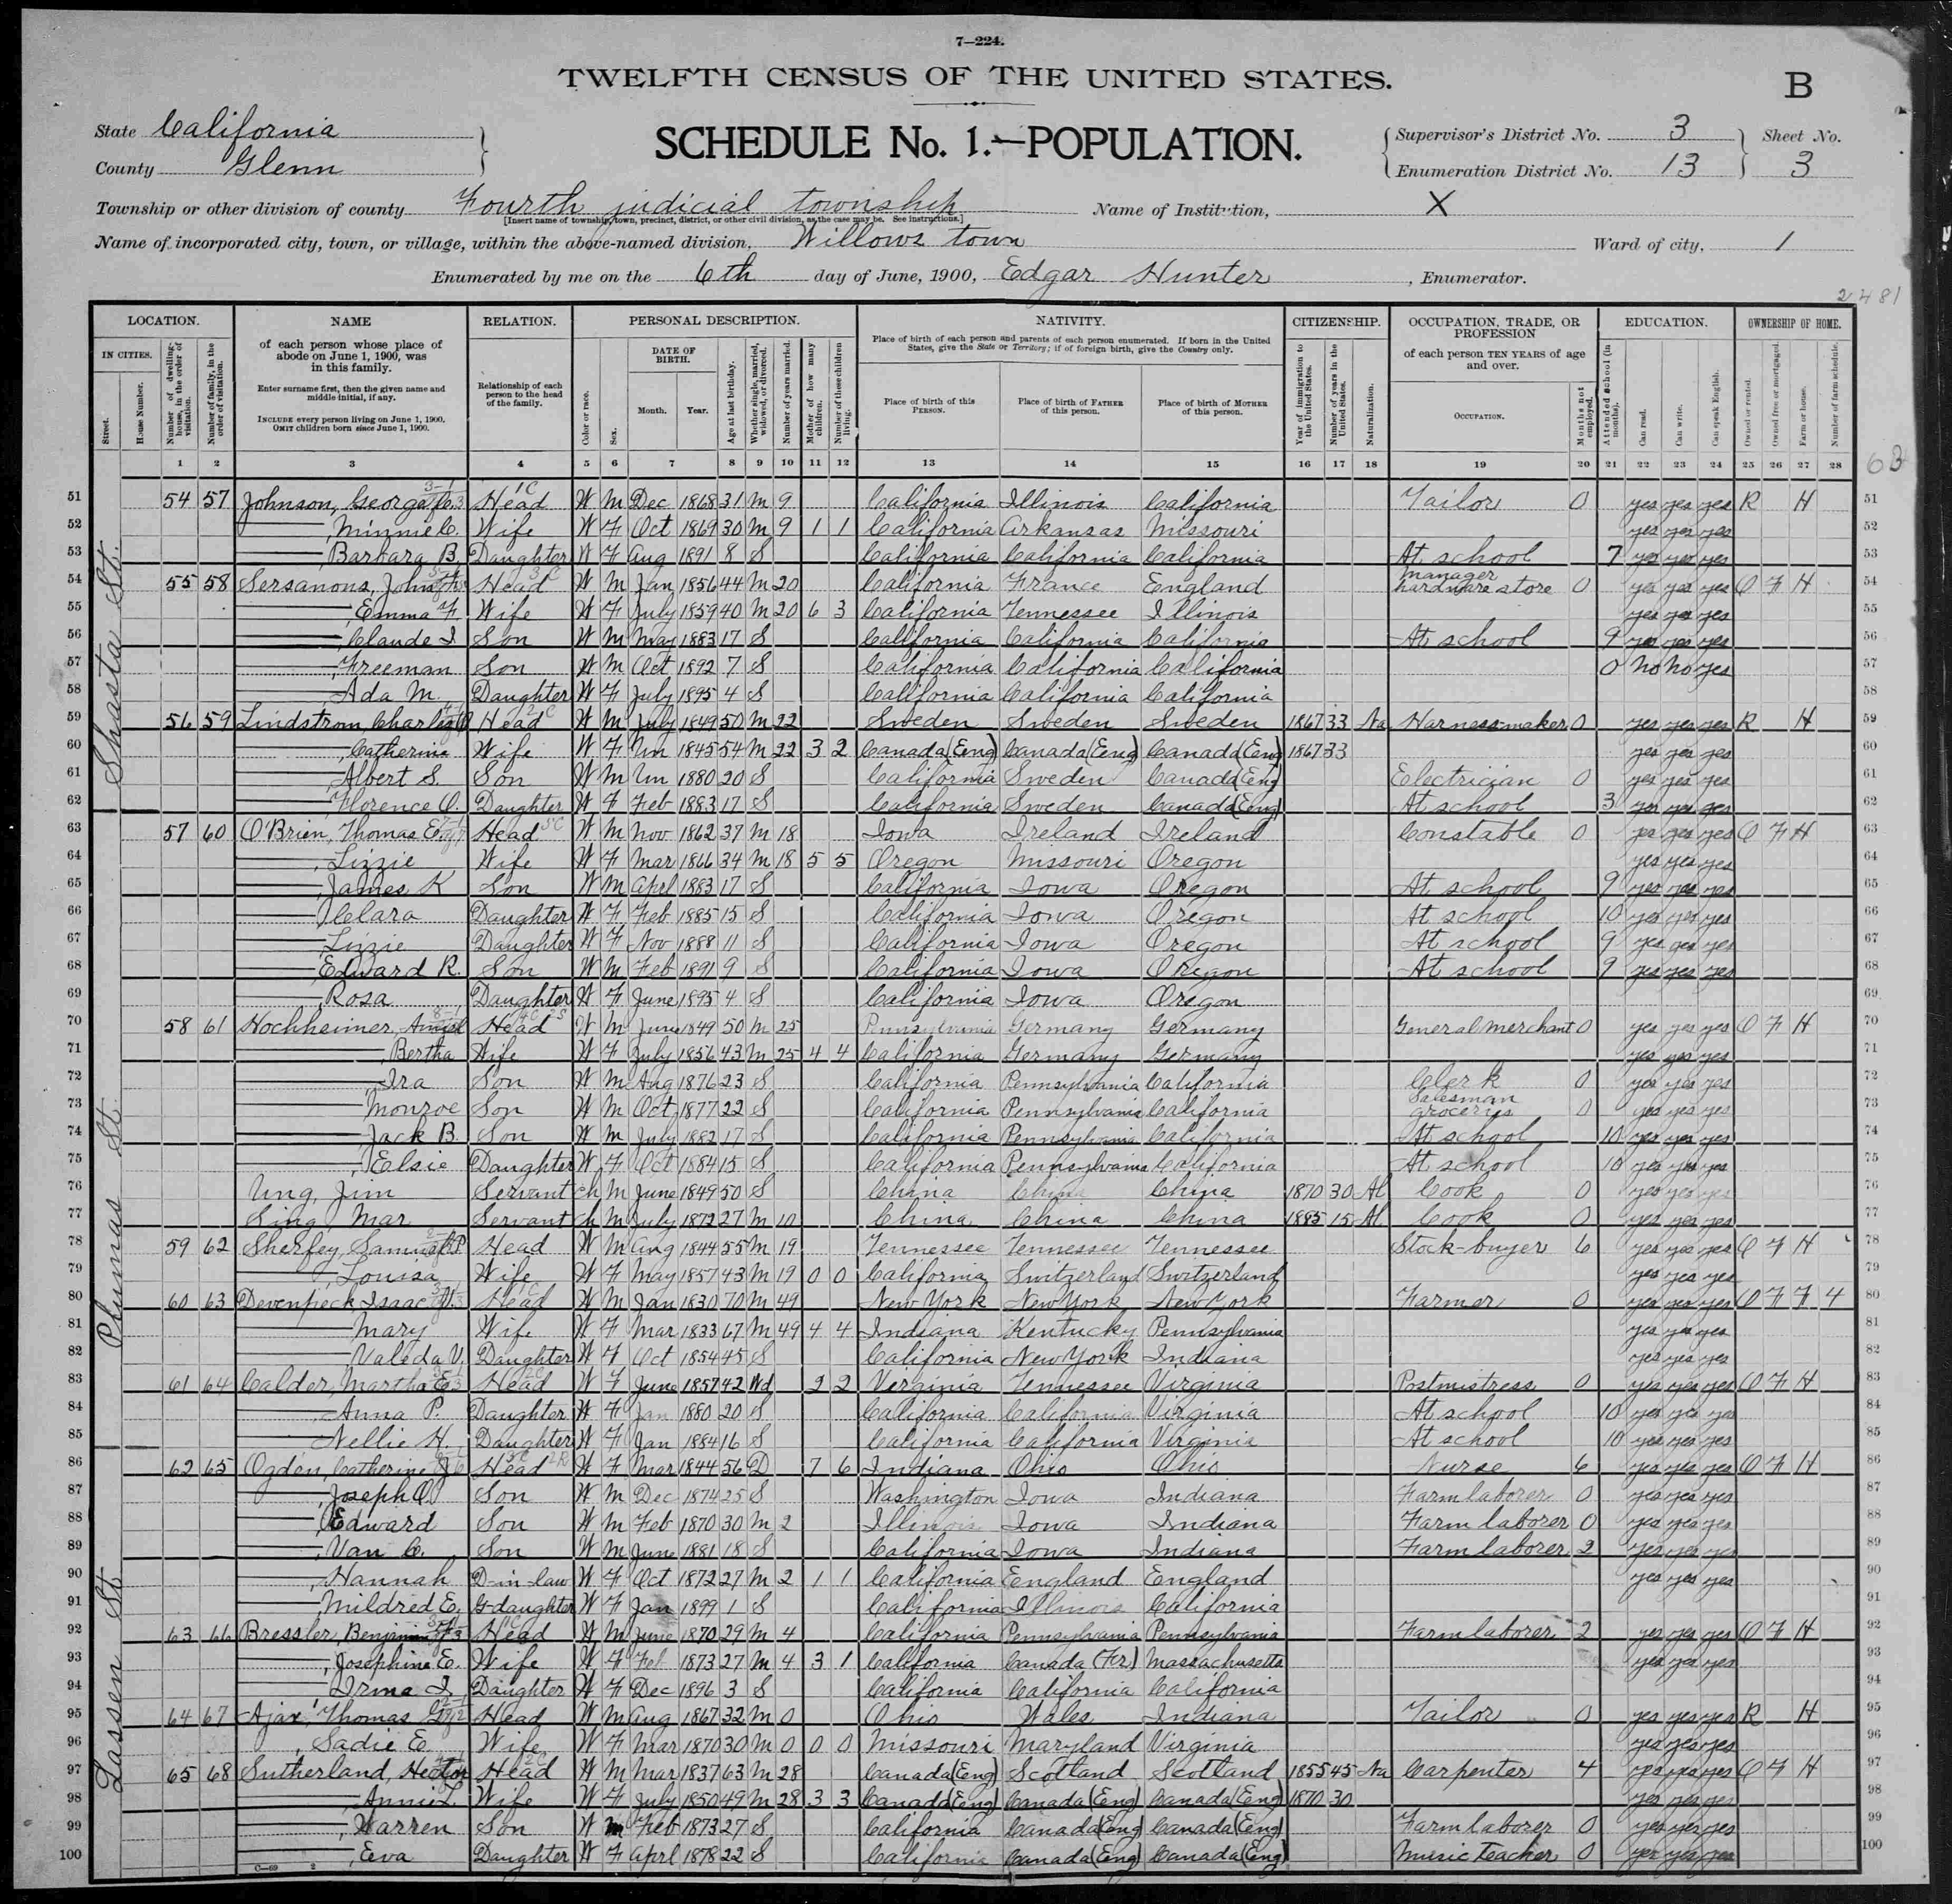 7—224.
TWELFTH CENSUS OF THE UNITED STATES.
B
State California
County Glenn
SCHEDULE No. 1.—POPULATION.
Supervisor's District No. 3
Enumeration District No. 13
Sheet No.
3
Township or other division of county Fourth judicial township Name of Institution, X
[Insert name of township, town, precinct, district, or other civil division, as the case may be. See instructions.]
Name of incorporated city, town, or village, within the above-named division, Willows town Ward of city, 1
Enumerated by me on the 6th day of June, 1900, Edgar Hunter, Enumerator.
2481
63
LOCATION. NAME RELATION. PERSONAL DESCRIPTION. NATIVITY. CITIZENSHIP. OCCUPATION, TRADE, OR PROFESSION EDUCATION. OWNERSHIP OF HOME.
IN CITIES.
Street.
House Number.
Number of dwelling-house, in the order of visitation.
Number of family, in the order of visitation.
of each person whose place of abode on June 1, 1900, was in this family.
Enter surname first, then the given name and middle initial, if any.
INCLUDE every person living on June 1, 1900.
OMIT children born since June 1, 1900.
Relationship of each person to the head of the family.
Color or race.
Sex.
DATE OF BIRTH.
Month.
Year.
Age at last birthday.
Whether single, married, widowed, or divorced.
Number of years married.
Mother of how many children.
Number of these children living.
Place of birth of each person and parents of each person enumerated. If born in the United States, give the State or Territory; if of foreign birth, give the Country only.
Place of birth of this PERSON.
Place of birth of FATHER of this person.
Place of birth of MOTHER of this person.
Year of immigration to the United States.
Number of years in the United States.
Naturalization.
of each person TEN YEARS of age and over.
OCCUPATION.
Months not employed.
Attended school (in months).
Can read.
Can write.
Can speak English.
Owned or rented.
Owned free or mortgaged.
Farm or house.
Number of farm schedule.
1 2 3 4 5 6 7 8 9 10 11 12 13 14 15 16 17 18 19 20 21 22 23 24 25 26 27 28
Shasta St.
51 54 57 Johnson, George Head W M Dec 1868 31 M 9 California Illinois California Tailor 0 yes yes yes R H 51
52 Minnie C. Wife W F Oct 1869 30 M 9 1 1 California Arkansas Missouri yes yes yes 52
53 Barbara B. Daughter W F Aug 1891 8 S California California California At school 7 yes yes yes 53
54 55 58 Sersanous, John Head W M Jan 1856 44 M 20 California France England manager hardware store 0 yes yes yes O F H 54
55 Emma F Wife W F July 1859 40 M 20 6 3 California Tennessee Illinois yes yes yes 55
56 Claude I Son W M May 1883 17 S California California California At school 9 yes yes yes 56
57 Freeman Son W M Oct 1892 7 S California California California 0 No No yes 57
58 Ada M. Daughter W F July 1895 4 S California California California 58
59 56 59 Lindstrom, Charles Head W M July 1849 50 M 22 Sweden Sweden Sweden 1867 33 Na Harness-maker 0 yes yes yes R H 59
60 Catherine Wife W F Un 1845 54 M 22 3 2 Canada (Eng) Canada (Eng) Canada (Eng) 1867 33 yes yes yes 60
61 Albert S. Son W M Un 1880 20 S California Sweden Canada (Eng) Electrician 0 yes yes yes 61
62 Florence O. Daughter W F Feb 1883 17 S California Sweden Canada (Eng) At school 3 yes yes yes 62
63 57 60 O'Brien, Thomas E. Head W M Nov 1862 37 M 18 Iowa Ireland Ireland Constable 0 yes yes yes O F H 63
64 Lizzie Wife W F Mar 1866 34 M 18 5 5 Oregon Missouri Oregon yes yes yes 64
65 James K Son W M April 1883 17 S California Iowa Oregon At school 9 yes yes yes 65
66 Clara Daughter W F Feb 1885 15 S California Iowa Oregon At school 10 yes yes yes 66
67 Lizzie Daughter W F Nov 1888 11 S California Iowa Oregon At school 9 yes yes yes 67
68 Edward R. Son W M Feb 1891 9 S California Iowa Oregon At school 9 yes yes yes 68
69 Rosa Daughter W F June 1895 4 S California Iowa Oregon 69
Plumas St
70 58 61 Hochheimer, Head W M June 1849 50 M 25 Pennsylvania Germany Germany General merchant 0 yes yes yes O F H 70
71 Bertha Wife W F July 1856 43 M 25 4 4 California Germany Germany yes yes yes 71
72 Ira Son W M Aug 1876 23 S California Pennsylvania California Clerk 0 yes yes yes 72
73 Monroe Son W M Oct 1877 22 S California Pennsylvania California Salesman groceries 0 yes yes yes 73
74 Jack B. Son W M July 1882 17 S California Pennsylvania California At school 10 yes yes yes 74
75 Elsie Daughter W F Oct 1884 15 S California Pennsylvania California At school 10 yes yes yes 75
76 Ung, Jim Servant Ch M June 1849 50 S China China China 1870 30 Al Cook 0 yes yes yes 76
77 Sing, Mar Servant Ch M July 1872 27 M 10 China China China 1885 15 Al Cook 0 yes yes yes 77
78 59 62 Sherfey, Samuel P Head W M Aug 1844 55 M 19 Tennessee Tennessee Tennessee Stock-buyer 6 yes yes yes O F H 78
79 Louisa Wife W F May 1857 43 M 19 0 0 California Switzerland Switzerland yes yes yes 79
80 60 63 Devenpeck Isaac Head W M Jan 1830 70 M 49 New York New York New York Farmer 0 yes yes yes O F F 4 80
81 Mary Wife W F Mar 1833 67 M 49 4 4 Indiana Kentucky Pennsylvania yes yes yes 81
82 Valeda V. Daughter W F Oct 1854 45 S California New York Indiana yes yes yes 82
83 61 64 Calder, Martha E Head W F June 1857 42 Wd 2 2 Virginia Tennessee Virginia Postmistress 0 yes yes yes O F H 83
84 Anna P. Daughter W F Jan 1880 20 S California California Virginia At school 10 yes yes yes 84
85 Nellie H. Daughter W F Jan 1884 16 S California California Virginia At school 10 yes yes yes 85
Lassen St
86 62 65 Ogden, Catherine J Head W F Mar 1844 56 D 7 6 Indiana Ohio Ohio Nurse 6 yes yes yes O F H 86
87 Joseph O. Son W M Dec 1874 25 S Washington Iowa Indiana Farm laborer 0 yes yes yes 87
88 Edward Son W M Feb 1870 30 M 2 Illinois Iowa Indiana Farm laborer 0 yes yes yes 88
89 Van C. Son W M June 1881 18 S California Iowa Indiana Farm laborer 2 yes yes yes 89
90 Hannah D-in-law W F Oct 1872 27 M 2 1 1 California England England yes yes yes 90
91 Mildred E. G-daughter W F Jan 1899 1 S California Illinois California 91
92 63 66 Bressler, Benjamin Head W M June 1870 29 M 4 California Pennsylvania Pennsylvania Farm laborer 2 yes yes yes O F H 92
93 Josephine E. Wife W F Feb 1873 27 M 4 3 1 California Canada (Fr) Massachusetts yes yes yes 93
94 Irma I. Daughter W F Dec 1896 3 S California California California 94
95 64 67 Ajax, Thomas Head W M Aug 1867 32 M 0 Ohio Wales Indiana Tailor 0 yes yes yes R H 95
96 Sadie E. Wife W F Mar 1870 30 M 0 0 0 Missouri Maryland Virginia yes yes yes 96
97 65 68 Sutherland, Hector Head W M Mar 1837 63 M 28 Canada (Eng) Scotland Scotland 1855 45 Na Carpenter 4 yes yes yes O F H 97
98 Annie L. Wife W F July 1850 49 M 28 3 3 Canada (Eng) Canada (Eng) Canada (Eng) 1870 30 yes yes yes 98
99 Warren Son W M Feb 1873 27 S California Canada (Eng) Canada (Eng) Farm laborer 0 yes yes yes 99
100 Eva Daughter W F April 1878 22 S California Canada (Eng) Canada (Eng) Music teacher 0 yes yes yes 100
C—69 2